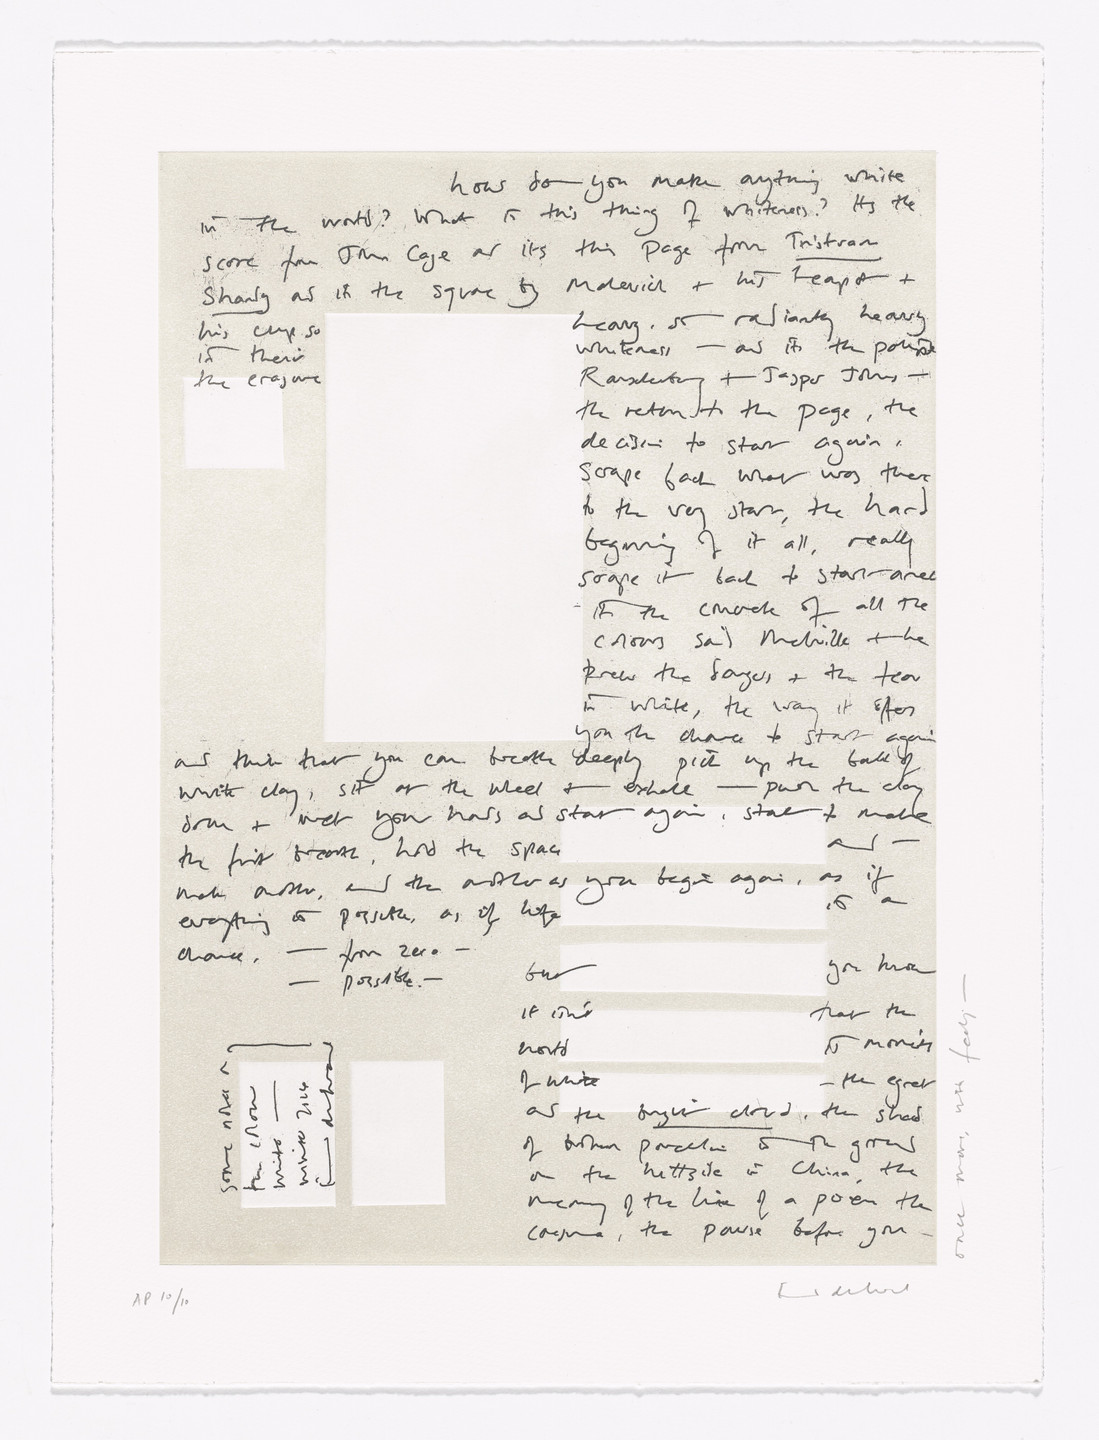 how do you make anything white
in the world? What is this thing of whiteness? Its the
score from John Cage or its this page from Tristram
Shandy or it the square by Malevich + his teapot +
his cup so
is their
the erasure
heavy. so radiantly heavy
whiteness — and its the
Rauschenberg + Jasper Johns —
the return to the page, the
decision to start again.
Scrape back what was there
to the very start, the hard
beginning of it all, really
scrape it back to start
- it the of all the
colours said Melville + he
knew the dangers + the fear
in white, the way it offers
you the chance to start again
and think that you can breathe deeply pick up the ball of
white clay, sit at the wheel + exhale — push the clay
down + wet your hands and start again. start to make
the first breath, hold the space and —
make another, and the another as you begin again, as if
everything is possible, as if is a
chance. — from zero —
— possible. —
but you know
it isn't that the
world is
of white — the egret
and the bright cloud, the shard
of broken porcelain on the ground
on the hillside in China, the
meaning of the line of a poem the
caesura, the pause before you —
some notes on
the colour
white —
white 2014
E de Waal
once more, with feeling —
AP 10/10
E de Waal